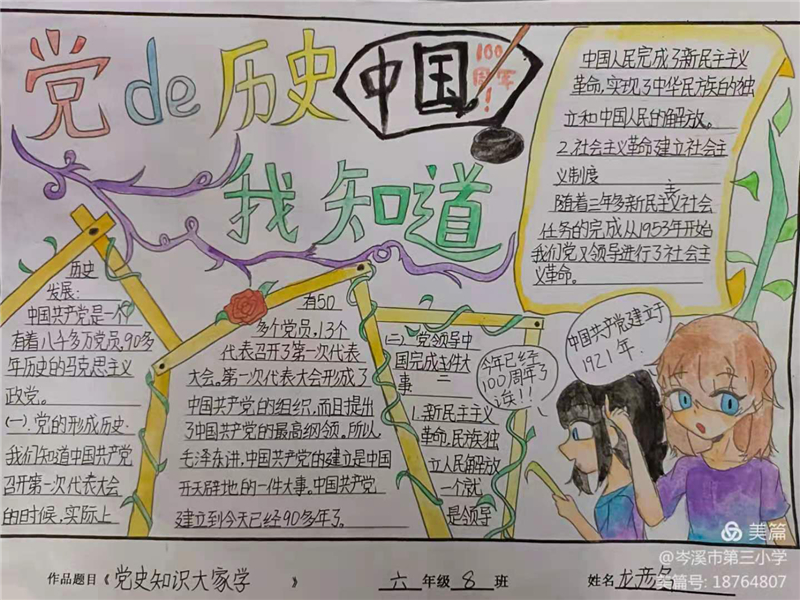 党de历史
中国
100
周年
!
我知道
历史
发展:
中国共产党是一个
有着八千多万党员,90多
年历史的马克思主义
政党。
(一).党的形成历史.
我们知道中国共产党
召开第一次代表大会
的时候,实际上
有50
多个党员,13个
代表召开了第一次代表
大会。第一次代表大会形成了
中国共产党的组织,而且提出
了中国共产党的最高纲领。所以
毛泽东讲,中国共产党的建立是中国
开天辟地的一件大事。中国共产党
建立到今天已经90多年了。
(二).党领导中
国完成三件大
事
1.新民主主义
革命,民族独
立人民解放
一个就
是领导
中国人民完成了新民主主义
革命,实现了中华民族的独
立和中国人民的解放。
2.社会主义革命,建立社会主
义制度
随着三年多新民主主义社会
任务的完成从1953年开始
我们党又领导进行了社会主
义革命。
今年已经
100周年了
!!
中国共产党建立于
1921年.
作品题目《党史知识大家学》 六年级 8 班 姓名 龙彦
美篇
@岑溪市第三小学
美篇号: 18764807